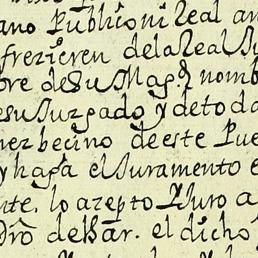 ano Publico ni Real an
frezieren dela Real Ju
bre de Su Magd nomb
esu Juzgado y de toda
nez becino de este Pue
y haga el Juramento e
nte. lo azepto Y Juro a
Dro de Bar. el dicho